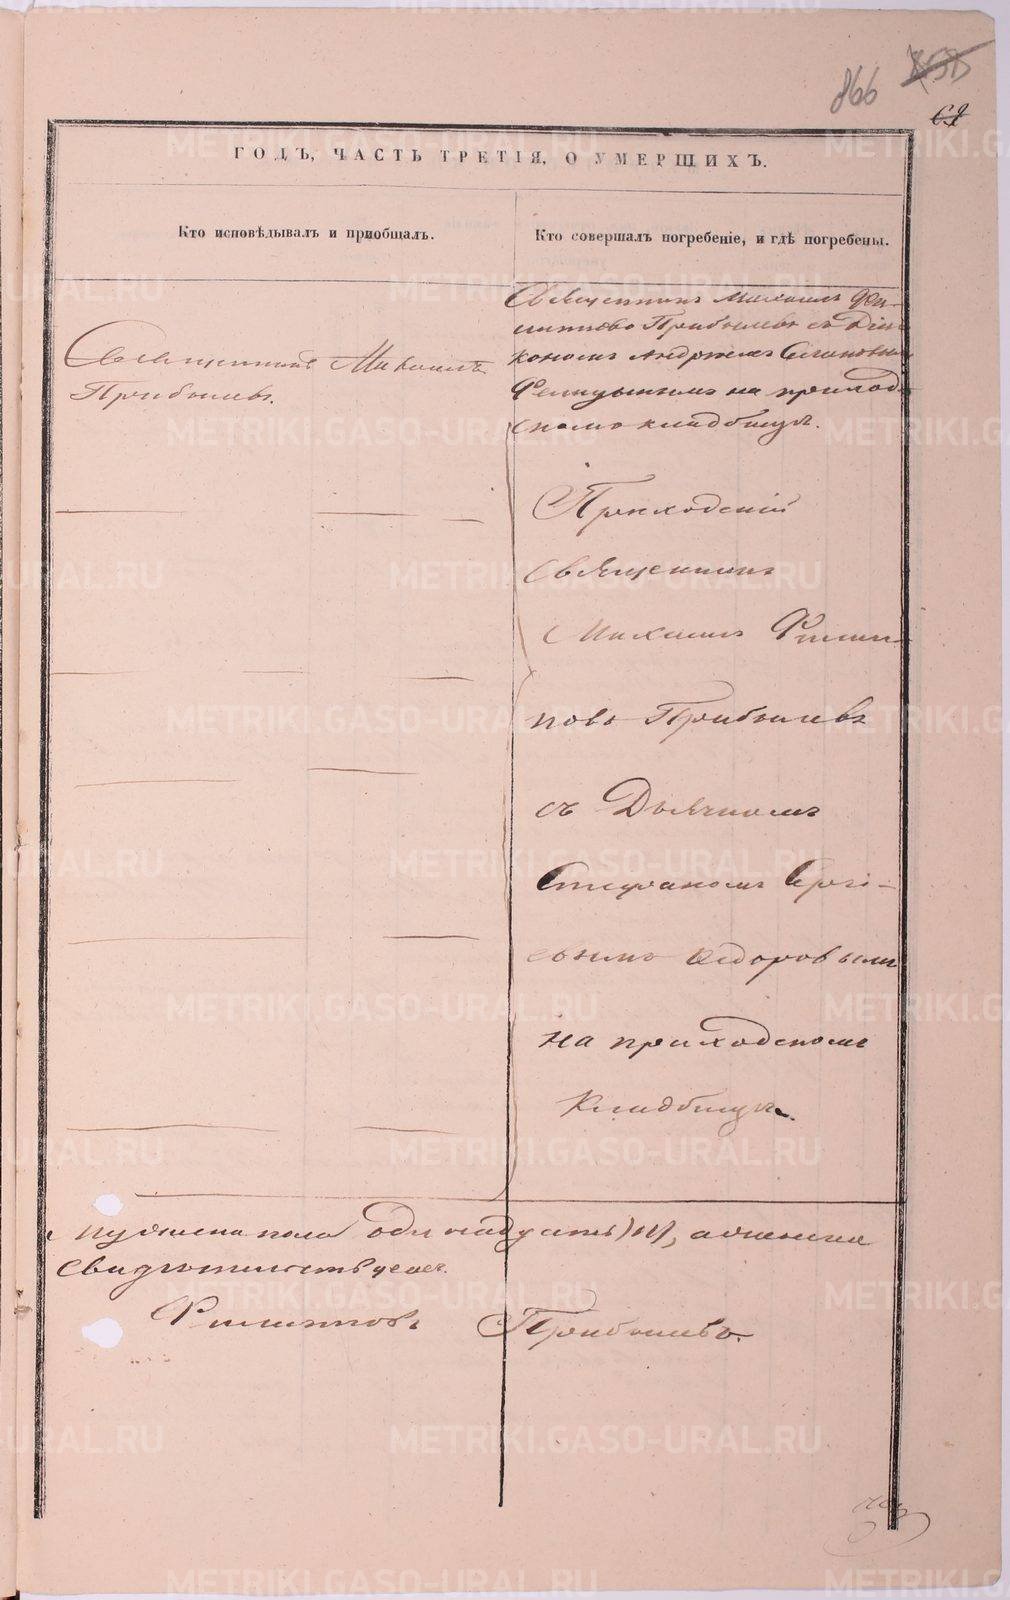 866
ГОДЪ, ЧАСТЬ ТРЕТІЯ, О УМЕРШИХЪ.
Кто исповѣдывалъ и пріобщалъ.
Кто совершалъ погребеніе, и гдѣ погребены.
Священникъ Михаилъ
Прибылевъ.
Священникъ Михаилъ Фи-
липповъ Прибылевъ съ Діа-
кономъ Андреемъ
на приход-
скомъ кладбищѣ.
Приходскій
Священникъ
Михаилъ Филип-
повъ Прибылевъ
съ Дьячкомъ
Стефаномъ Сергі-
евымъ Ѳедоровымъ
на приходскомъ
Кладбищѣ.
Мужеска пола одинадцать) 11), а женска
Свидѣтельствуемъ.
Филипповъ Прибылевъ.
METRIKI.GASO-URAL.RU